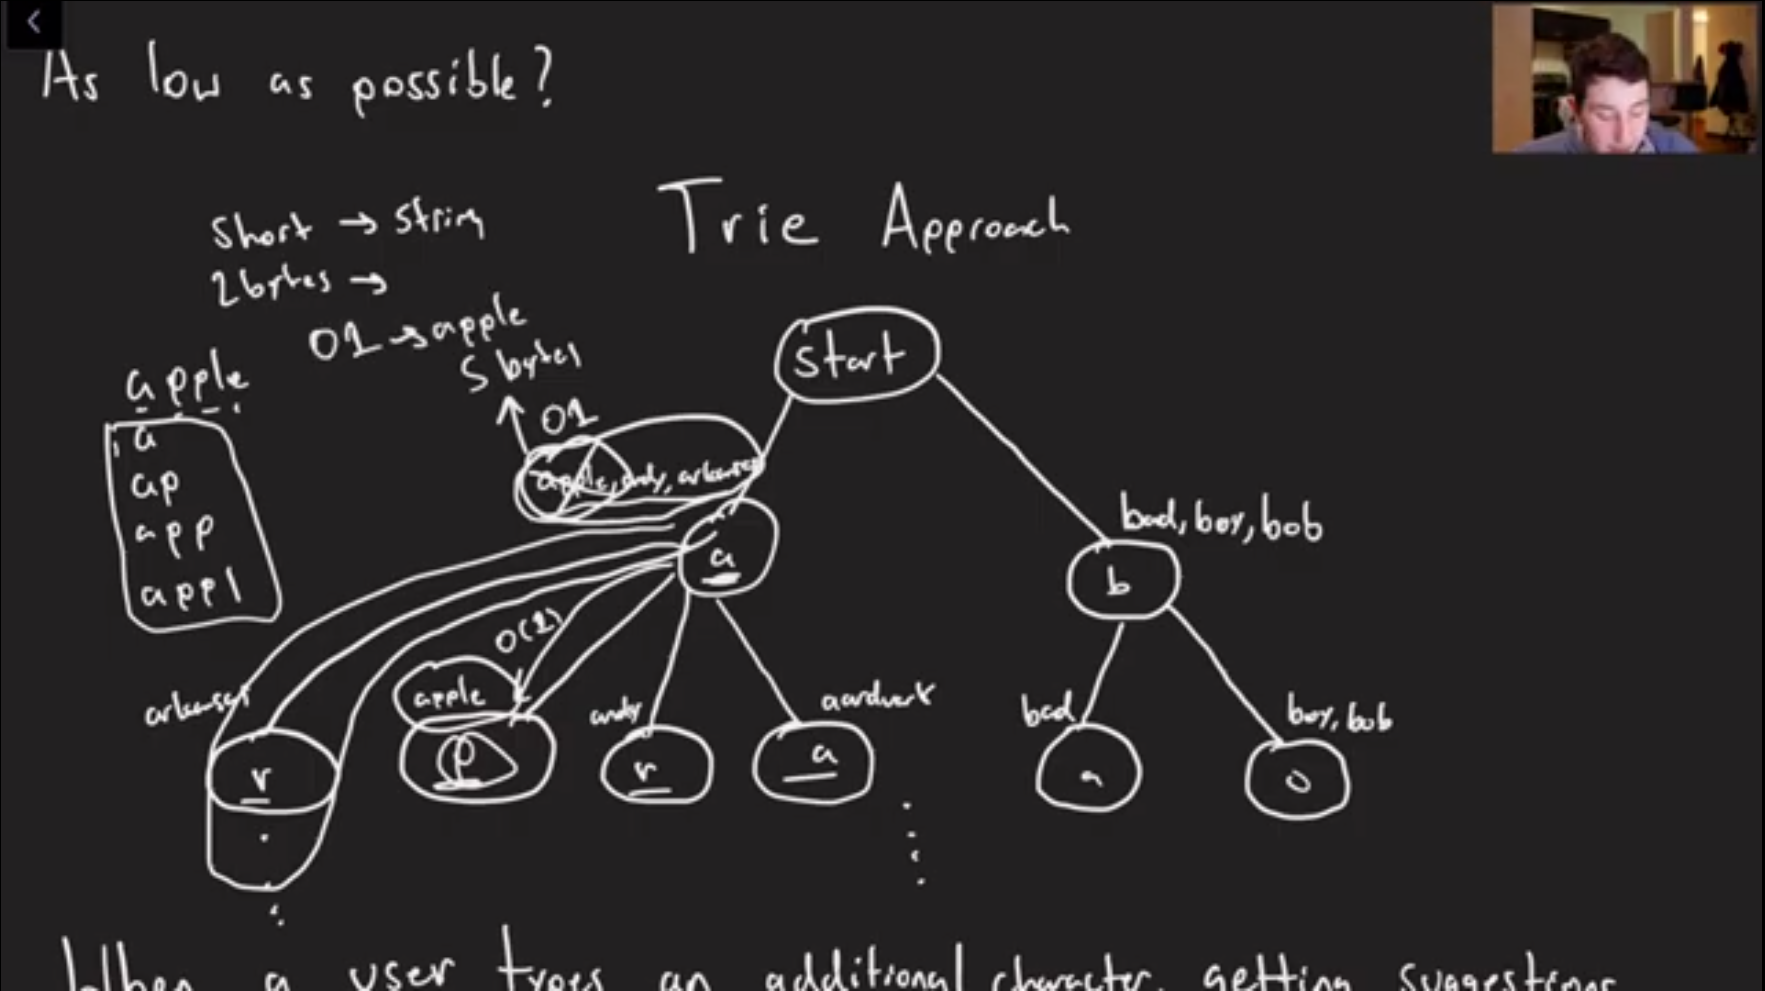 As low as possible?
Trie Approach
short → string
2bytes →
01 → apple
5 bytes
apple
a
ap
app
appl
01
apple, andy, arkansas
start
a
bad, boy, bob
b
O(1)
arkansas
apple
andy
aardvark
bad
boy, bob
r
p
r
a
a
o
When a user types an additional character, getting suggestions